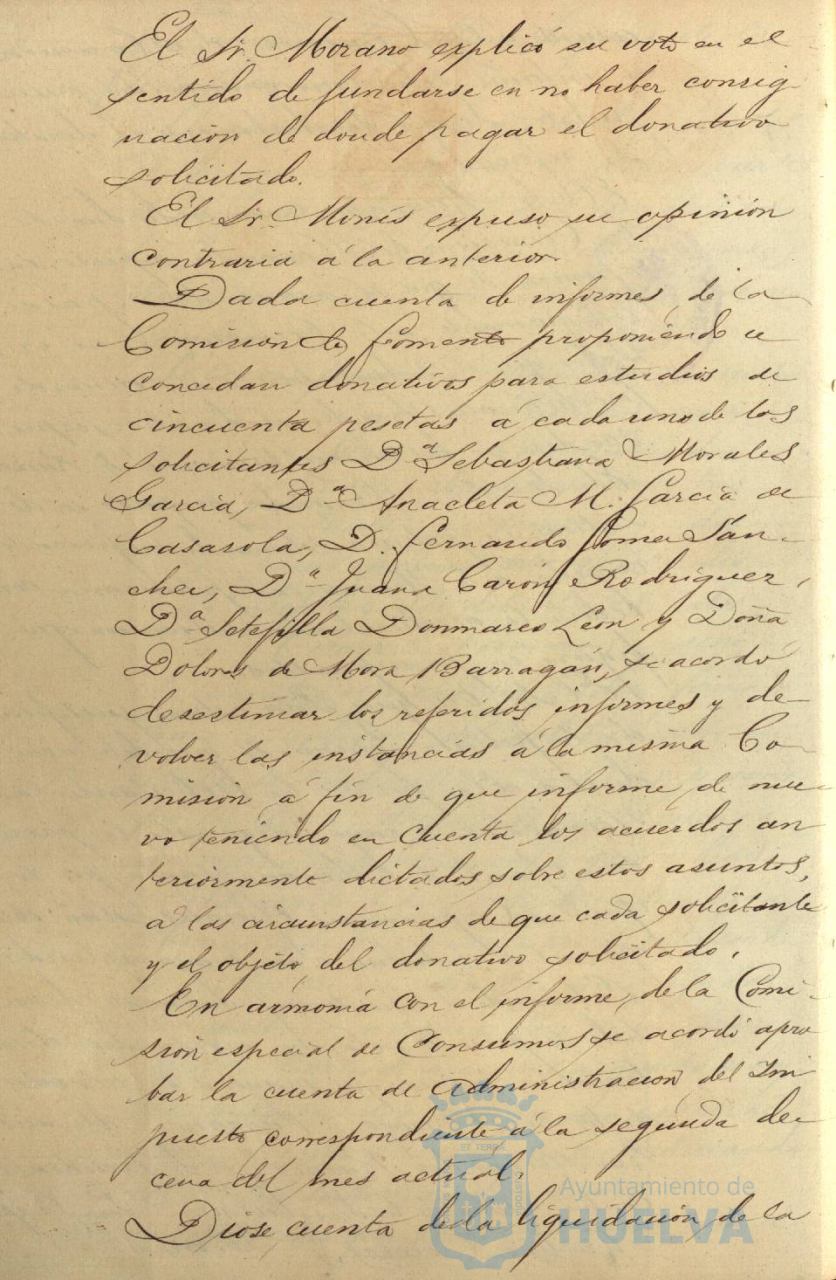 El Sr. Morano explicó su voto en el
sentido de fundarse en no haber consig
nación de donde pagar el donativo
solicitado.
El Sr. Monís expuso su opinión
contraria á la anterior.
Dada cuenta de informes de la
Comisión de Fomento proponiendo se
concedan donativos para estudios de
cincuenta pesetas á cada uno de los
solicitantes Dª Sebastiana Morales
García, Dª Anacleta M. García de
Casasola, D. Fernando Gomez Sán-
chez, Dª Juana Carón Rodríguez,
Dª Setefilla Donmarco León y Doña
Dolores de Mora Barragán, se acordó
desestimar los referidos informes y de
volver las instancias á la misma Co-
misión á fin de que informe de nue-
vo teniendo en cuenta los acuerdos an
teriormente dictados sobre estos asuntos,
á las circunstancias de que cada solicitante
y el objeto del donativo solicitado.
En armonía con el informe de la Comi-
sión especial de Consumos se acordó apro
bar la cuenta de administración del Im
puesto correspondiente á la segunda de-
cena del mes actual.
Diose cuenta de la liquidación de la
Ayuntamiento de
HUELVA